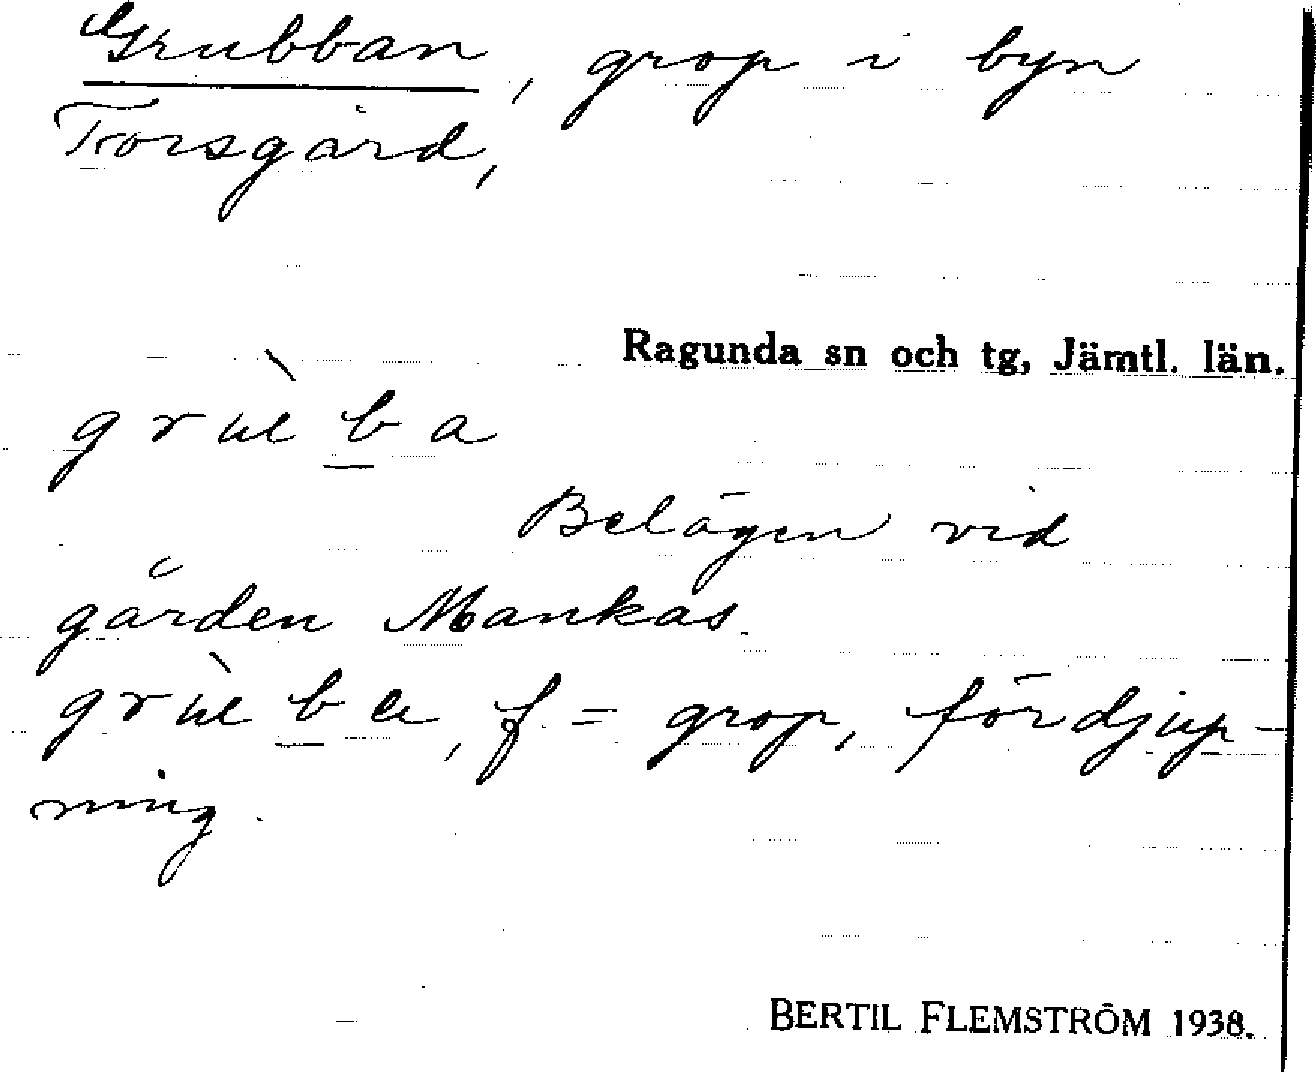 Grubban, grop i byn
Torsgård,
Ragunda sn och tg, Jämtl. län.
grùb̲a
Belägen vid
gården Mankas.
grùb̲a, f = grop, fördjup-
ning.
BERTIL FLEMSTRÖM 1938.